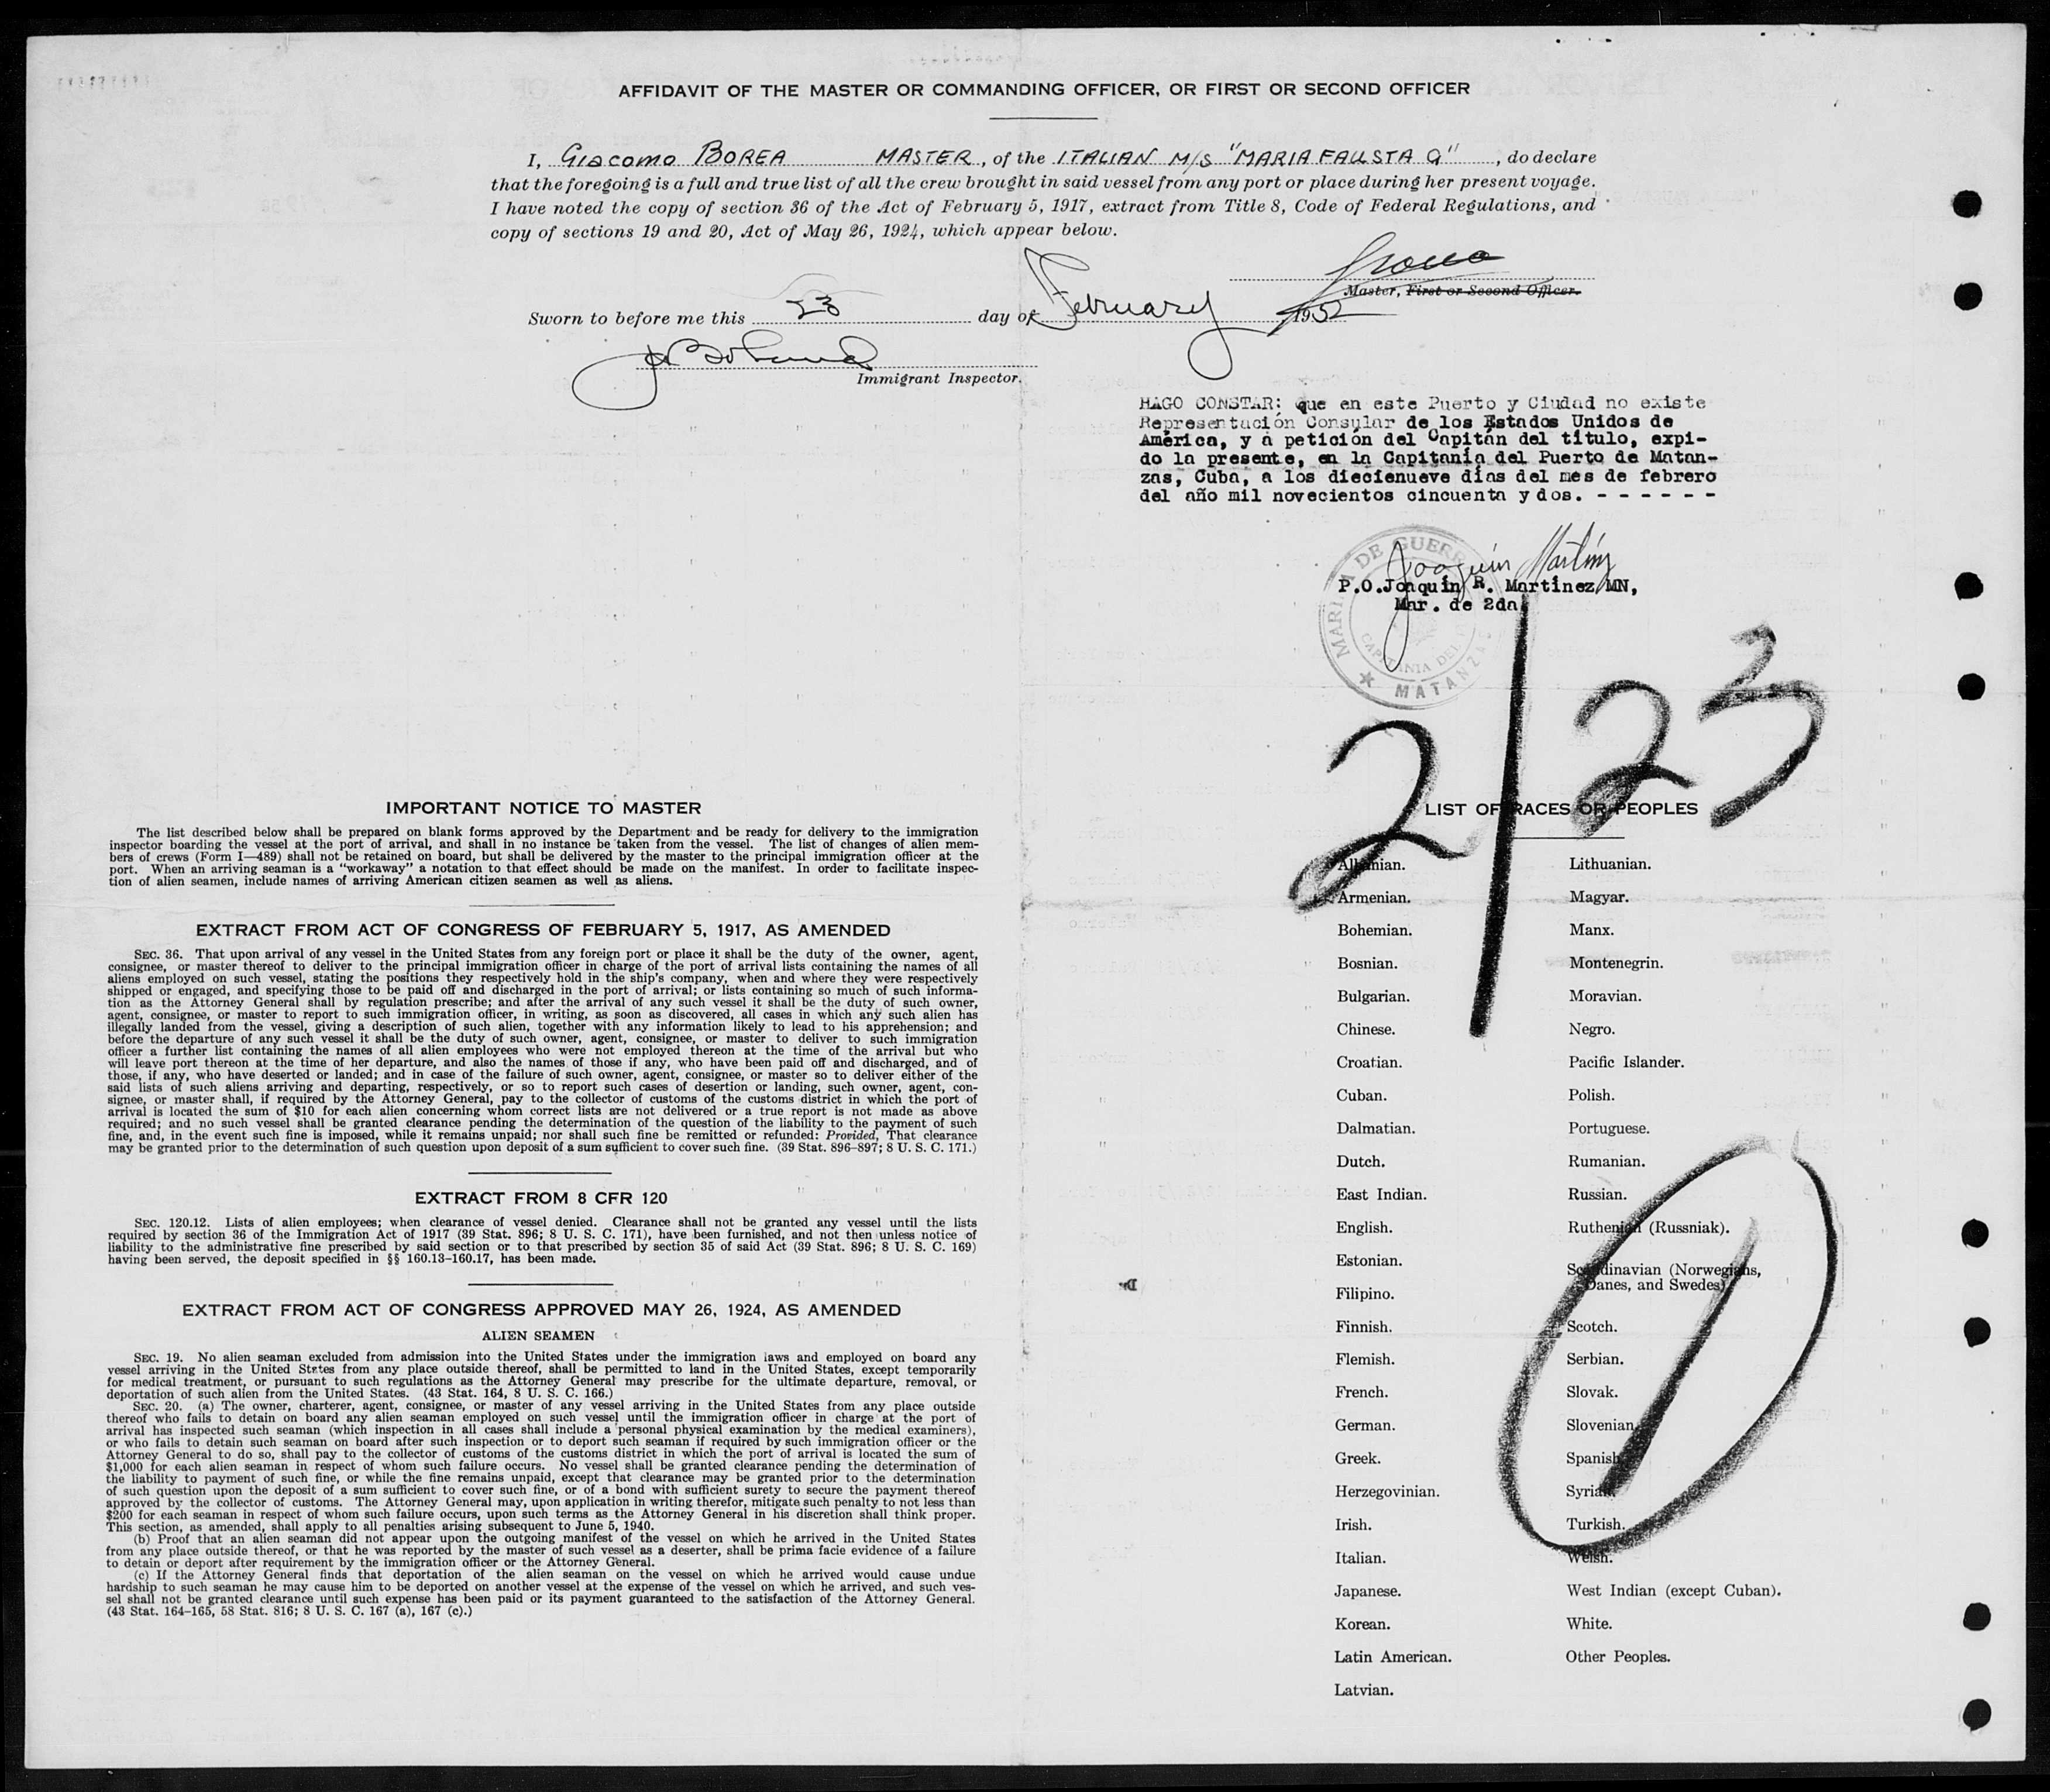 AFFIDAVIT OF THE MASTER OR COMMANDING OFFICER, OR FIRST OR SECOND OFFICER
I, Giacomo BOREA MASTER, of the ITALIAN M/S "MARIA FAUSTA G", do declare
that the foregoing is a full and true list of all the crew brought in said vessel from any port or place during her present voyage.
I have noted the copy of section 36 of the Act of February 5, 1917, extract from Title 8, Code of Federal Regulations, and
copy of sections 19 and 20, Act of May 26, 1924, which appear below.
Master, First or Second Officer.
Sworn to before me this 23 day of February, 1952
Immigrant Inspector.
HAGO CONSTAR: que en este Puerto y Ciudad no existe
Representación Consular de los Estados Unidos de
América, y a petición del Capitán del titulo, expi-
do la presente, en la Capitanía del Puerto de Matan-
zas, Cuba, a los diecienueve días del mes de febrero
del año mil novecientos cincuenta y dos. - - - - - -
Joaquin Martinez
MARINA DE GUERRA
CAPITANIA DEL
MATANZAS
P.O. Joaquin R. Martinez, MN,
Mar. de 2da.
2/23
IMPORTANT NOTICE TO MASTER
The list described below shall be prepared on blank forms approved by the Department and be ready for delivery to the immigration
inspector boarding the vessel at the port of arrival, and shall in no instance be taken from the vessel. The list of changes of alien mem-
bers of crews (Form I—489) shall not be retained on board, but shall be delivered by the master to the principal immigration officer at the
port. When an arriving seaman is a "workaway" a notation to that effect should be made on the manifest. In order to facilitate inspec-
tion of alien seamen, include names of arriving American citizen seamen as well as aliens.
EXTRACT FROM ACT OF CONGRESS OF FEBRUARY 5, 1917, AS AMENDED
SEC. 36. That upon arrival of any vessel in the United States from any foreign port or place it shall be the duty of the owner, agent,
consignee, or master thereof to deliver to the principal immigration officer in charge of the port of arrival lists containing the names of all
aliens employed on such vessel, stating the positions they respectively hold in the ship's company, when and where they were respectively
shipped or engaged, and specifying those to be paid off and discharged in the port of arrival; or lists containing so much of such informa-
tion as the Attorney General shall by regulation prescribe; and after the arrival of any such vessel it shall be the duty of such owner,
agent, consignee, or master to report to such immigration officer, in writing, as soon as discovered, all cases in which any such alien has
illegally landed from the vessel, giving a description of such alien, together with any information likely to lead to his apprehension; and
before the departure of any such vessel it shall be the duty of such owner, agent, consignee, or master to deliver to such immigration
officer a further list containing the names of all alien employees who were not employed thereon at the time of the arrival but who
will leave port thereon at the time of her departure, and also the names of those if any, who have been paid off and discharged, and of
those, if any, who have deserted or landed; and in case of the failure of such owner, agent, consignee, or master so to deliver either of the
said lists of such aliens arriving and departing, respectively, or so to report such cases of desertion or landing, such owner, agent, con-
signee, or master shall, if required by the Attorney General, pay to the collector of customs of the customs district in which the port of
arrival is located the sum of $10 for each alien concerning whom correct lists are not delivered or a true report is not made as above
required; and no such vessel shall be granted clearance pending the determination of the question of the liability to the payment of such
fine, and, in the event such fine is imposed, while it remains unpaid; nor shall such fine be remitted or refunded: Provided, That clearance
may be granted prior to the determination of such question upon deposit of a sum sufficient to cover such fine. (39 Stat. 896–897; 8 U. S. C. 171.)
EXTRACT FROM 8 CFR 120
SEC. 120.12. Lists of alien employees; when clearance of vessel denied. Clearance shall not be granted any vessel until the lists
required by section 36 of the Immigration Act of 1917 (39 Stat. 896; 8 U. S. C. 171), have been furnished, and not then unless notice of
liability to the administrative fine prescribed by said section or to that prescribed by section 35 of said Act (39 Stat. 896; 8 U. S. C. 169)
having been served, the deposit specified in §§ 160.13–160.17, has been made.
EXTRACT FROM ACT OF CONGRESS APPROVED MAY 26, 1924, AS AMENDED
ALIEN SEAMEN
SEC. 19. No alien seaman excluded from admission into the United States under the immigration laws and employed on board any
vessel arriving in the United States from any place outside thereof, shall be permitted to land in the United States, except temporarily
for medical treatment, or pursuant to such regulations as the Attorney General may prescribe for the ultimate departure, removal, or
deportation of such alien from the United States. (43 Stat. 164, 8 U. S. C. 166.)
SEC. 20. (a) The owner, charterer, agent, consignee, or master of any vessel arriving in the United States from any place outside
thereof who fails to detain on board any alien seaman employed on such vessel until the immigration officer in charge at the port of
arrival has inspected such seaman (which inspection in all cases shall include a personal physical examination by the medical examiners),
or who fails to detain such seaman on board after such inspection or to deport such seaman if required by such immigration officer or the
Attorney General to do so, shall pay to the collector of customs of the customs district in which the port of arrival is located the sum of
$1,000 for each alien seaman in respect of whom such failure occurs. No vessel shall be granted clearance pending the determination of
the liability to payment of such fine, or while the fine remains unpaid, except that clearance may be granted prior to the determination
of such question upon the deposit of a sum sufficient to cover such fine, or of a bond with sufficient surety to secure the payment thereof
approved by the collector of customs. The Attorney General may, upon application in writing therefor, mitigate such penalty to not less than
$200 for each seaman in respect of whom such failure occurs, upon such terms as the Attorney General in his discretion shall think proper.
This section, as amended, shall apply to all penalties arising subsequent to June 5, 1940.
(b) Proof that an alien seaman did not appear upon the outgoing manifest of the vessel on which he arrived in the United States
from any place outside thereof, or that he was reported by the master of such vessel as a deserter, shall be prima facie evidence of a failure
to detain or deport after requirement by the immigration officer or the Attorney General.
(c) If the Attorney General finds that deportation of the alien seaman on the vessel on which he arrived would cause undue
hardship to such seaman he may cause him to be deported on another vessel at the expense of the vessel on which he arrived, and such ves-
sel shall not be granted clearance until such expense has been paid or its payment guaranteed to the satisfaction of the Attorney General.
(43 Stat. 164–165, 58 Stat. 816; 8 U. S. C. 167 (a), 167 (c).)
LIST OF RACES OR PEOPLES
Albanian.
Armenian.
Bohemian.
Bosnian.
Bulgarian.
Chinese.
Croatian.
Cuban.
Dalmatian.
Dutch.
East Indian.
English.
Estonian.
Filipino.
Finnish.
Flemish.
French.
German.
Greek.
Herzegovinian.
Irish.
Italian.
Japanese.
Korean.
Latin American.
Latvian.
Lithuanian.
Magyar.
Manx.
Montenegrin.
Moravian.
Negro.
Pacific Islander.
Polish.
Portuguese.
Rumanian.
Russian.
Ruthenian (Russniak).
Scandinavian (Norwegians,
Danes, and Swedes)
Scotch.
Serbian.
Slovak.
Slovenian.
Spanish.
Syrian.
Turkish.
Welsh.
West Indian (except Cuban).
White.
Other Peoples.